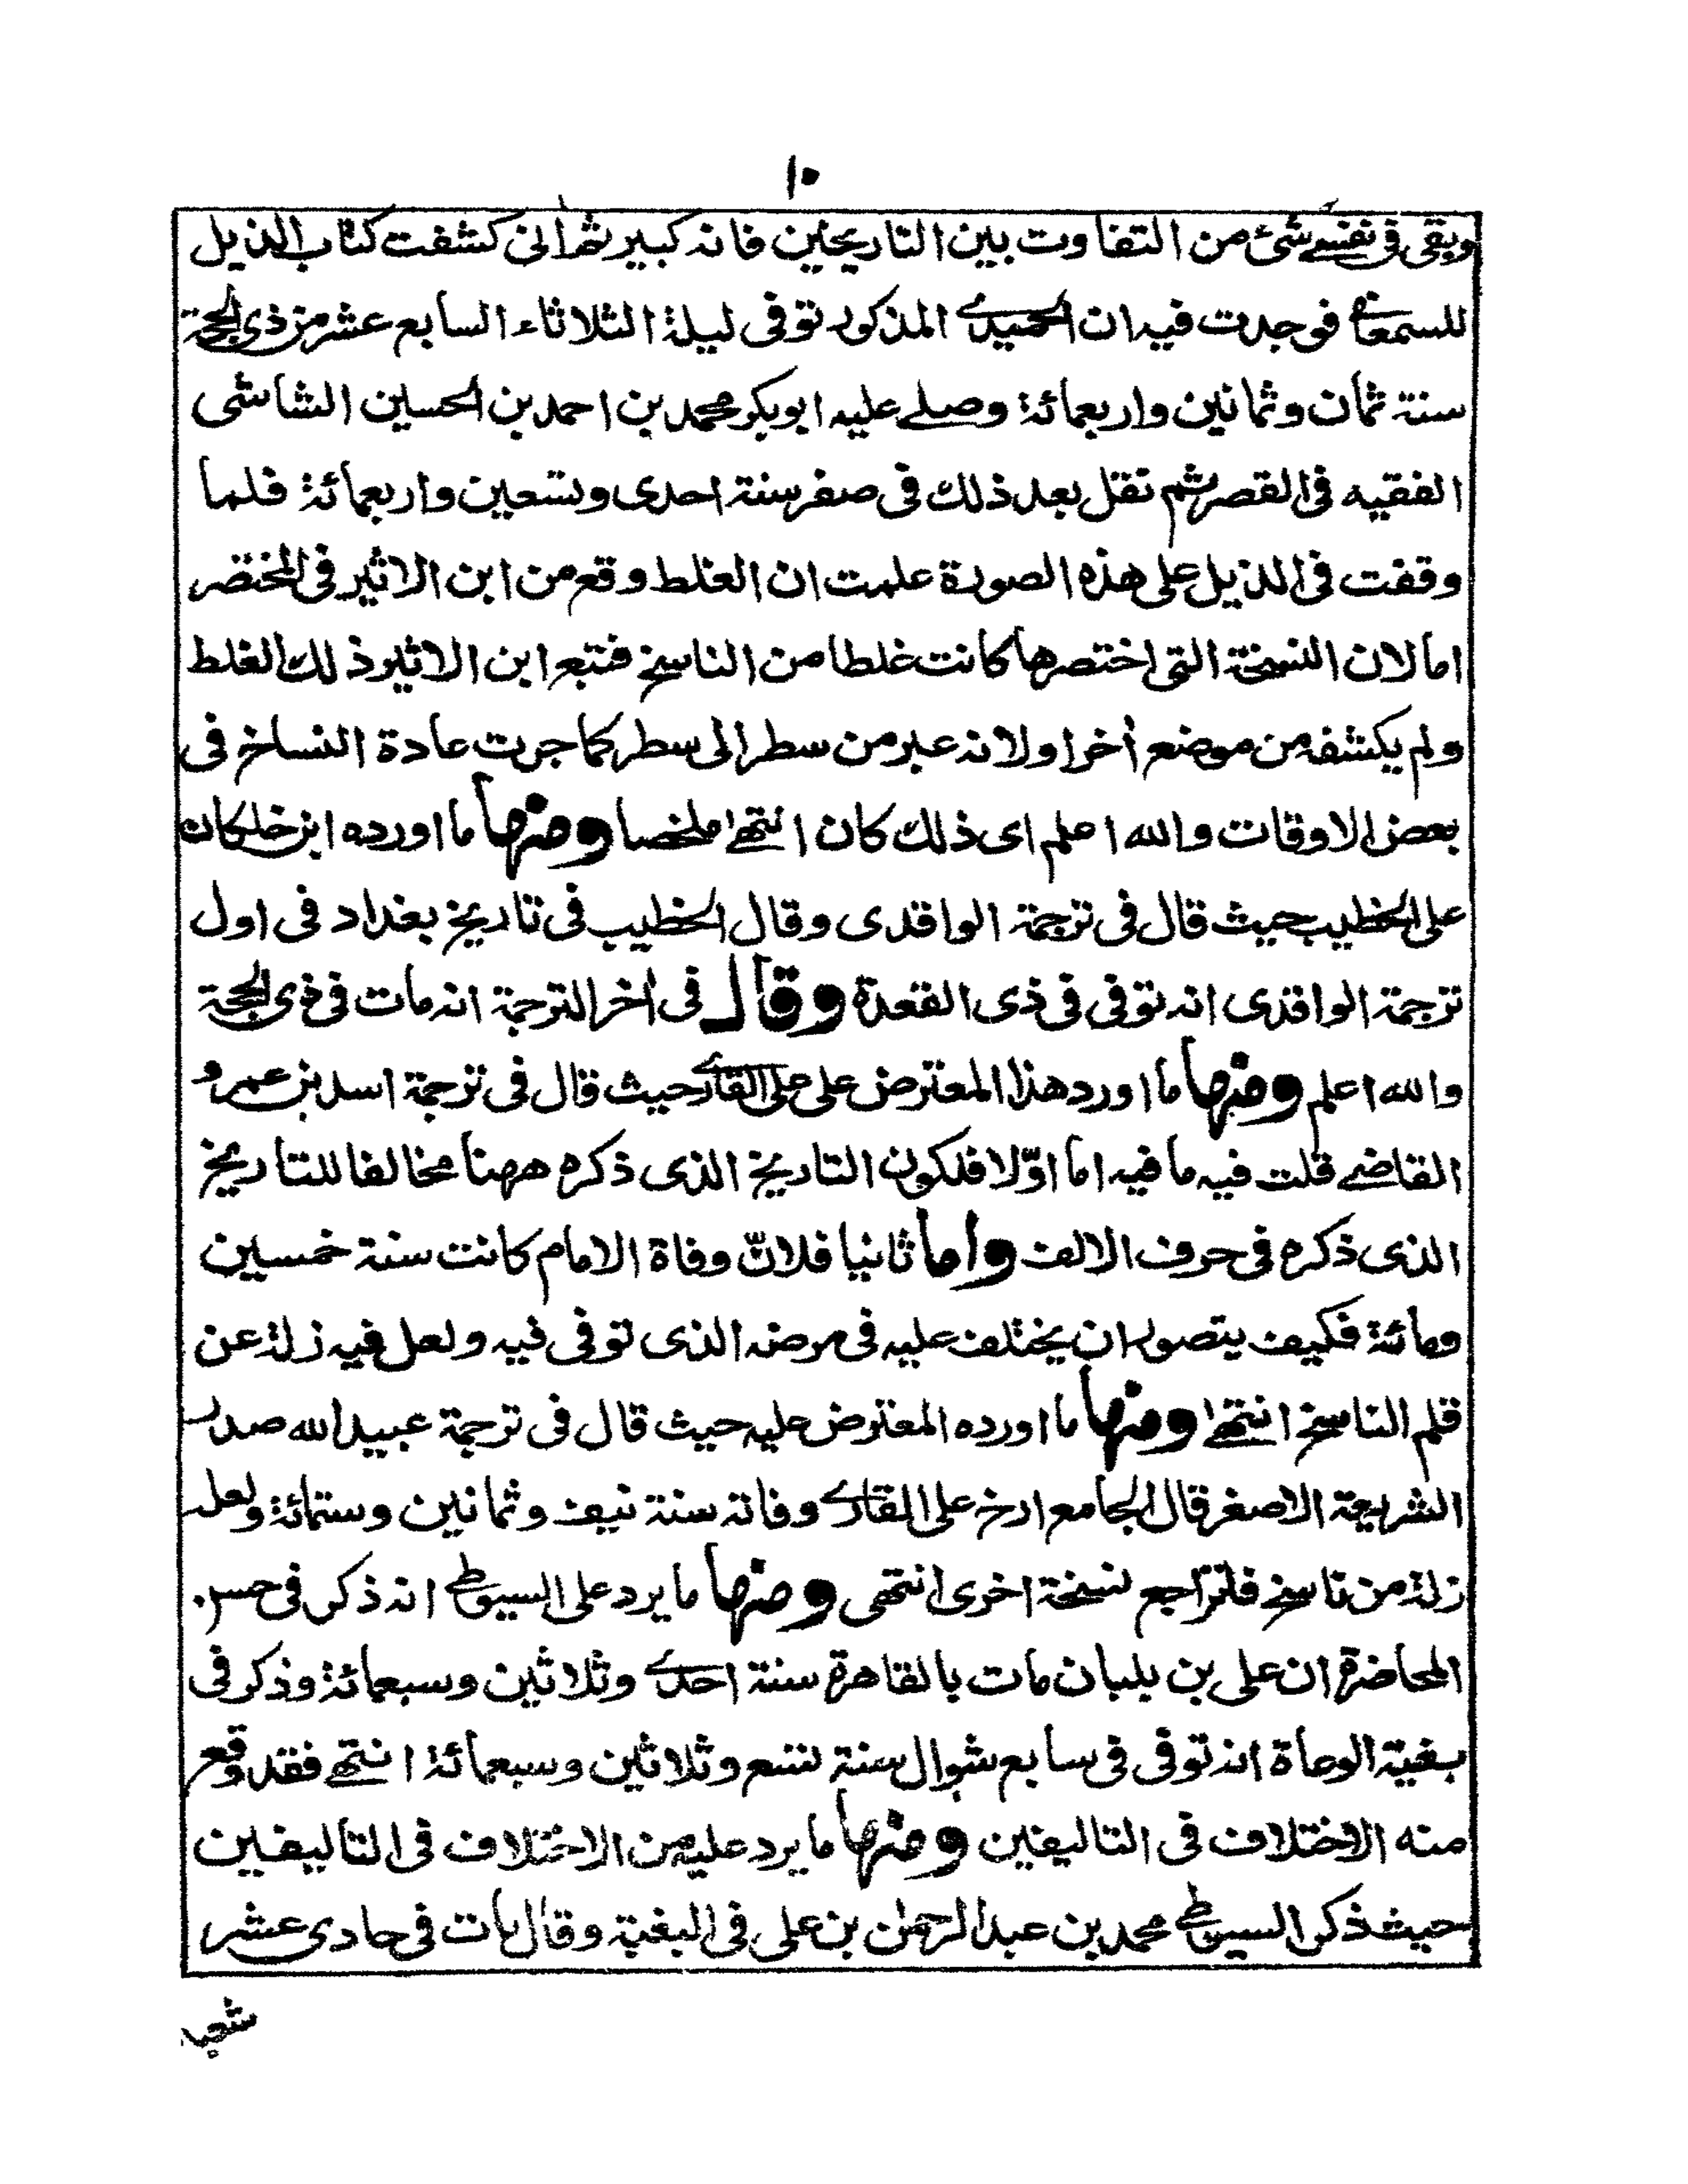 ١٠
وبقى فى نفسى شئ من التفاوت بين التاريخين فانه كبير ثم انى كشفت كتاب الذيل
للسمعانى فوجدت فيه ان الحميدى المذكور توفى ليلة الثلاثاء السابع عشر من ذى الحجة
سنة ثمان وثمانين واربعمائة وصلے عليه ابوبكر محمد بن احمد بن الحسين الشاشى
الفقيه فى القصر ثم نقل بعد ذلك فى صفر سنة احدى وتسعين واربعمائة فلما
وقفت فى الذيل على هذه الصورة علمت ان الغلط وقع من ابن الاثير فى المختصر
اما لان النسخة التى اختصرها كانت غلطا من الناسخ فتبع ابن الاثير ذلك الغلط
ولم يكشفه من موضع أخر او لانه عبر من سطر الى سطر كما جرت عادة النساخ فى
بعض الاوقات والله اعلم اى ذلك كان انتهے ملخصا ومنها ما اورده ابن خلكان
على الخطيب حيث قال فى ترجمة الواقدى وقال الخطيب فى تاريخ بغداد فى اول
ترجمة الواقدى انه توفى فى ذى القعدة وقال فى أخر الترجمة انه مات فى ذى الحجة
والله اعلم ومنها ما اورد هذا المعترض على على القارے حيث قال فى ترجمة اسد بن عمرو
القاضے قلت فيه ما فيه اما اوّلا فلكون التاريخ الذى ذكره ههنا مخالفا للتاريخ
الذى ذكره فى حرف الالف واما ثانيا فلانّ وفاة الامام كانت سنة خمسين
ومائة فكيف يتصور ان يختلف عليه فى مرضه الذى توفى فيه ولعل فيه زلة عن
قلم الناسخ انتهے ومنها ما اورده المعترض عليه حيث قال فى ترجمة عبيد الله صدر
الشريعة الاصغر قال الجامع ارخ على القارے وفاته سنة نيف وثمانين وستمائة ولعله
زلة من ناسخ فلتراجع نسخة اخرى انتهى ومنها ما يرد على السيوطے انه ذكر فى حسن
المحاضرة ان على بن بلبان مات بالقاهرة سنة احدے وثلاثين وسبعمائة وذكر فى
بغية الوعاة انه توفى فى سابع شوال سنة تسع وثلاثين وسبعمائة انتهے فقد وقع
منه الاختلاف فى التاليفين ومنها ما يرد عليه من الاختلاف فى التاليفين
حيث ذكر السيوطے محمد بن عبد الرحمن بن على فى البغية وقال مات فى حادى عشر